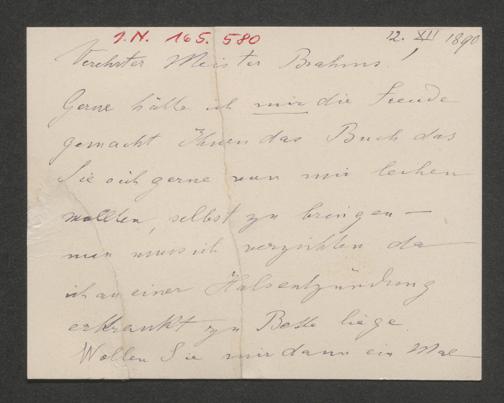 I.N. 165.580
12. XII 1890
Verehrter Meister Brahms!
Gerne hätte ich mir die Freude
gemacht Ihnen das Buch das
Sie sich gerne von mir leihen
wollten, selbst zu bringen —
nun muss ich verzichten da
ich an einer Halsentzündung
erkrankt zu Bette liege.
Wollen Sie mir dann ein Mal